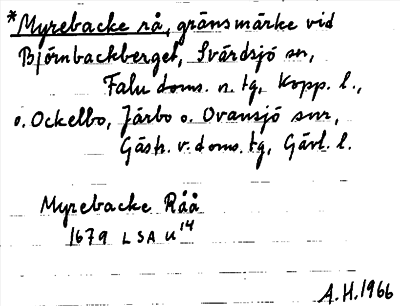 *Myrebacke rå, gränsmärke vid
Björnbackberget, Svärdsjö sn,
Falu doms. n. tg, Kopp. l.,
o. Ockelbo, Järbo o. Ovansjö snr,
Gästr. v. doms. tg, Gävl. l.
Myrebacke Råå
1679 LSA U¹⁴
A.H. 1966